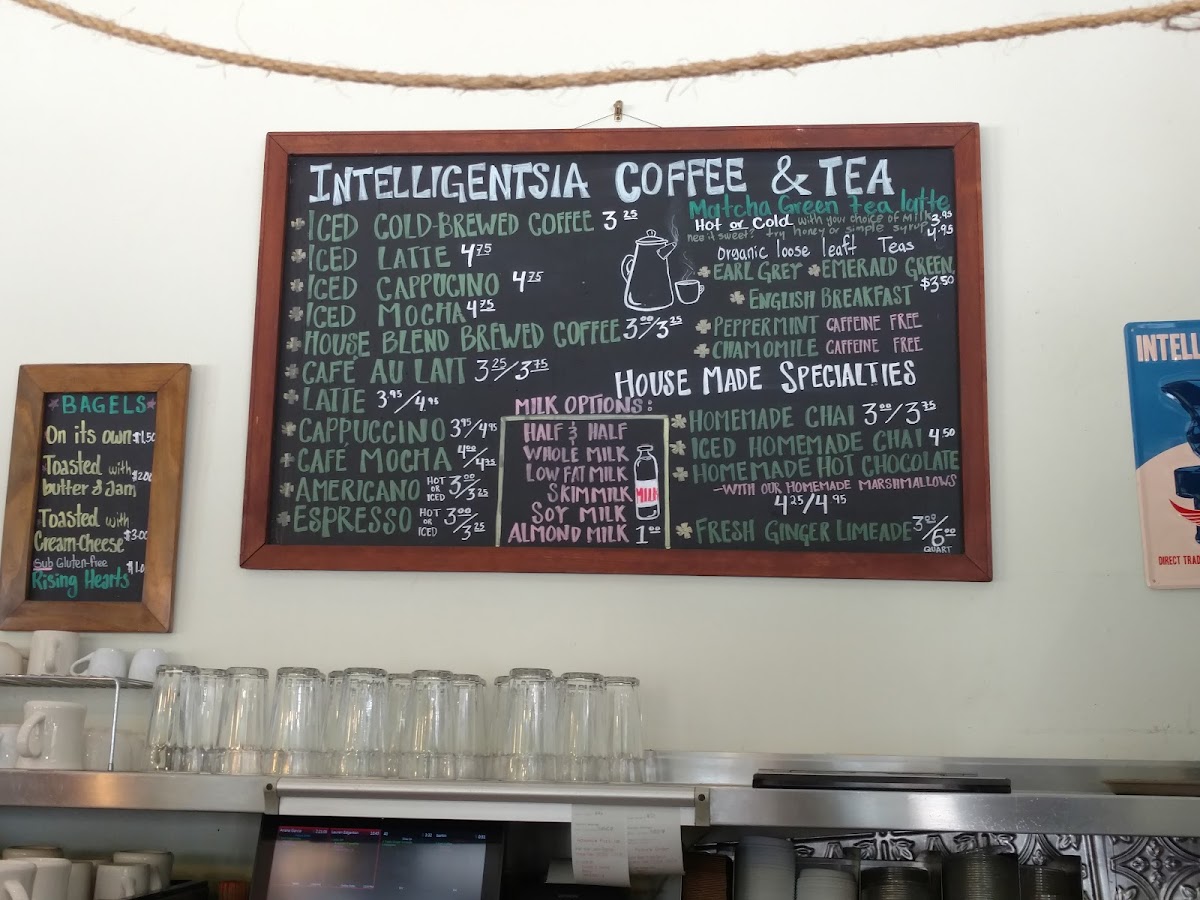 INTELLIGENTSIA COFFEE & TEA
ICED COLD-BREWED COFFEE 3 25
ICED LATTE 4 75
ICED CAPPUCINO 4 75
ICED MOCHA 4 75
HOUSE BLEND BREWED COFFEE 3 00/3 25
CAFÉ AU LAIT 3 25/3 75
LATTE 3 95/4 95
CAPPUCCINO 3 95/4 95
CAFÉ MOCHA 4 00/4 75
AMERICANO HOT OR ICED 3 00/3 25
ESPRESSO HOT OR ICED 3 00/3 25
MILK OPTIONS:
HALF & HALF
WHOLE MILK
LOW FAT MILK
SKIM MILK
SOY MILK
ALMOND MILK 1 00
MILK
Matcha Green tea latte
Hot or Cold with your choice of Milk 3.95
need it sweet? try honey or simple syrup 4.95
Organic loose leaft Teas
EARL GREY EMERALD GREEN
$3.50
ENGLISH BREAKFAST
PEPPERMINT CAFFEINE FREE
CHAMOMILE CAFFEINE FREE
HOUSE MADE SPECIALTIES
HOMEMADE CHAI 3 00/3 75
ICED HOMEMADE CHAI 4.50
HOMEMADE HOT CHOCOLATE
—WITH OUR HOMEMADE MARSHMALLOWS
4 25/4 95
FRESH GINGER LIMEADE 3 00/6 00
QUART
BAGELS
On its own $1.50
Toasted with
butter & Jam $2.00
Toasted with
Cream-Cheese $3.00
Sub Gluten-free
Rising Hearts $1.0
INTELL
DIRECT TRAD